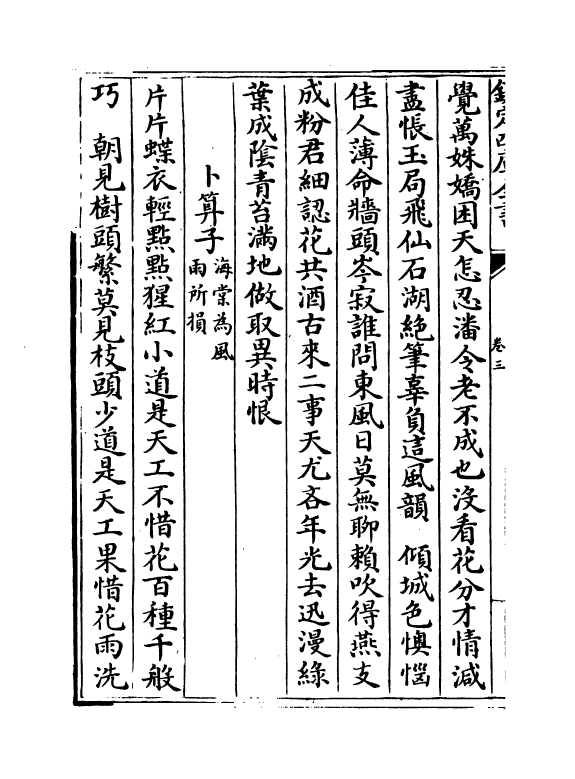 欽定四庫全書
卷三
覺萬姝嬌困天怎忍潘令老不成也没看花分才情減
盡悵玉局飛仙石湖絶筆辜負這風韻　傾城色懊惱
佳人薄命牆頭岑寂誰問東風日莫無聊賴吹得燕支
成粉君細認花共酒古來二事天尤吝年光去迅漫綠
葉成陰青苔滿地做取異時恨
卜算子海棠為風
雨所損
片片蝶衣輕點點猩紅小道是天工不惜花百種千般
巧　朝見樹頭繁莫見枝頭少道是天工果惜花雨洗